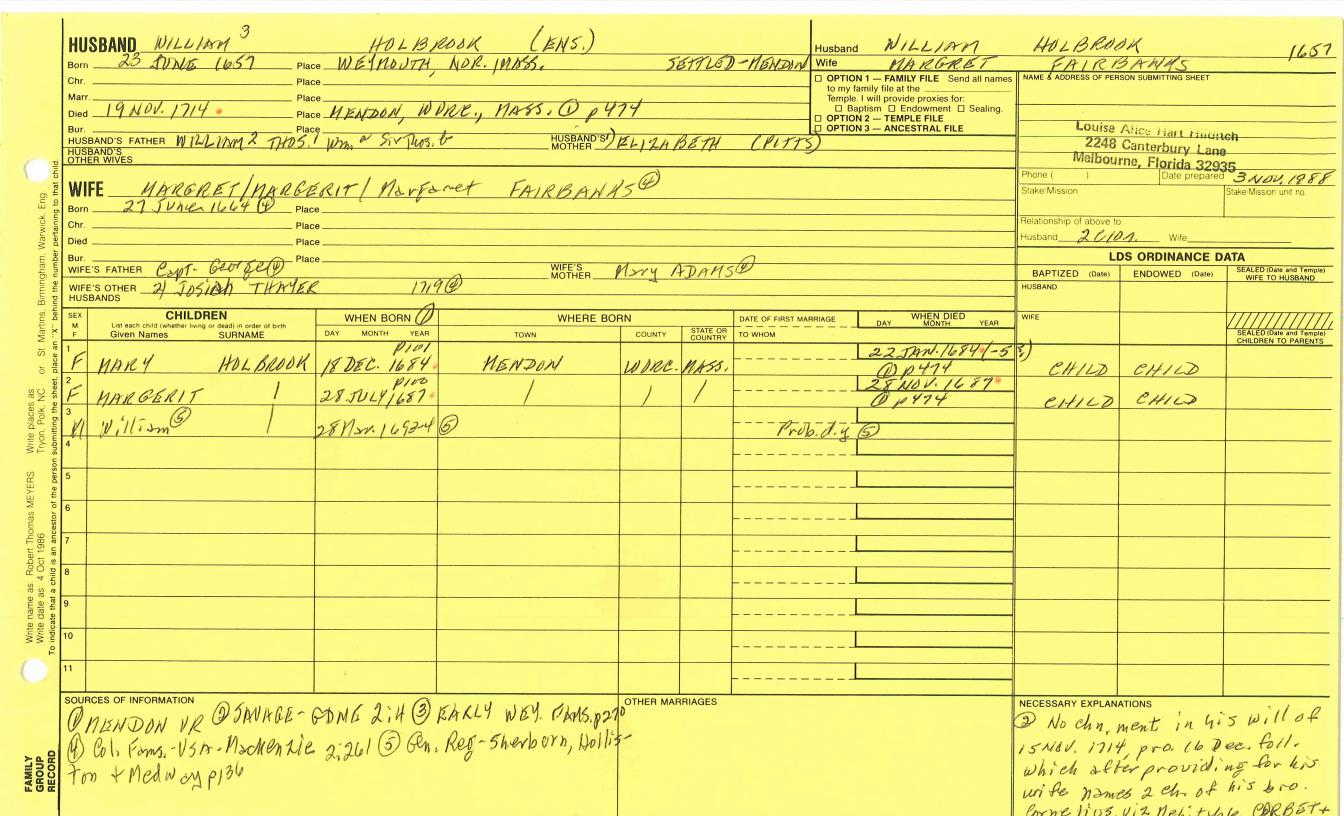 HUSBAND WILLIAM 3 HOLBROOK (ENS.)
Born 23 JUNE 1657 Place WEYMOUTH, NOR. MASS. SETTLED-MENDON
Chr. Place
Marr. Place
Died 19 NOV. 1714 Place MENDON, WORC., MASS. ① p474
Bur. Place
HUSBAND'S FATHER WILLIAM 2 THOS. 1 Wm a Sir Thos. b HUSBAND'S MOTHER ELIZABETH (PITTS)
HUSBAND'S OTHER WIVES
Husband WILLIAM HOLBROOK 1657
Wife MARGRET FAIRBANKS
☐ OPTION 1 — FAMILY FILE Send all names
to my family file at the
Temple. I will provide proxies for:
☐ Baptism ☐ Endowment ☐ Sealing.
☐ OPTION 2 — TEMPLE FILE
☐ OPTION 3 — ANCESTRAL FILE
NAME & ADDRESS OF PERSON SUBMITTING SHEET
Louise Alice Hart
2248 Canterbury Lane
Melbourne, Florida 32935
Phone ( ) Date prepared 3 NOV. 1988
Stake/Mission Stake/Mission unit no.
Relationship of above to
Husband Wife
WIFE MARGRET/MARGERIT/Margaret FAIRBANKS ④
Born 27 June 1664 ④ Place
Chr. Place
Died Place
Bur. Place
WIFE'S FATHER Capt. George ④ WIFE'S MOTHER Mary ADAMS ④
WIFE'S OTHER HUSBANDS 2) JOSIAH THAYER 1719 ④
LDS ORDINANCE DATA
BAPTIZED (Date) ENDOWED (Date) SEALED (Date and Temple) WIFE TO HUSBAND
HUSBAND
WIFE
SEALED (Date and Temple) CHILDREN TO PARENTS
SEX M F
CHILDREN
List each child (whether living or dead) in order of birth
Given Names SURNAME
WHEN BORN ①
DAY MONTH YEAR
WHERE BORN
TOWN COUNTY STATE OR COUNTRY
DATE OF FIRST MARRIAGE
TO WHOM
WHEN DIED
DAY MONTH YEAR
1 F MARY HOLBROOK 18 DEC. 1684 p101 MENDON WORC. MASS. 22 JAN. 1684/-5 ① p474 CHILD CHILD
2 F MARGERIT 28 JULY 1687 p100 28 NOV. 1687 ① p474 CHILD CHILD
3 M William ⑤ 28 Mar. 1692-4 ⑤ Prob. d.y ⑤
4
5
6
7
8
9
10
11
SOURCES OF INFORMATION
① MENDON VR ② SAVAGE-GDNE 2:4 ③ EARLY WEY. FAMS. p270
④ Col. Fams.-USA-Mackenzie 2:261 ⑤ Gen. Reg-Sherborn, Hollis-
ton + Medway p136
OTHER MARRIAGES
NECESSARY EXPLANATIONS
② No chn. ment in his will of
15 NOV. 1714, pro. 16 Dec. foll.
which after providing for his
wife names 2 ch. of his bro.
Cornelius, viz Mehitable CORBET+
Write name as: Robert Thomas MEYERS Write places as: Tryon, Polk, NC or St Martins, Birmingham, Warwick, Eng
Write date as: 4 Oct 1986
To indicate that a child is an ancestor of the person submitting the sheet, place an "X" behind the number pertaining to that child
FAMILY
GROUP
RECORD